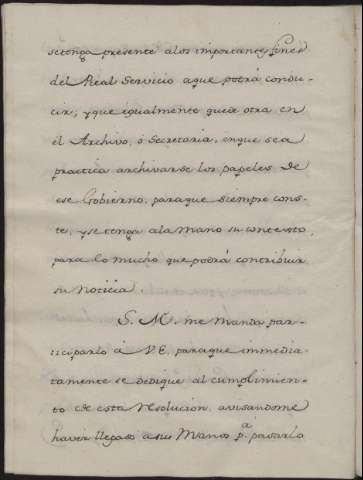 setenga presente alos importantes fines
del Real Servicio aque podrá condu-
cir; y que igualmente quede otra en
el Archivo, ó Secretaria, enque sea
practica archivarse los papeles de
ese Gobierno, paraque siempre cons-
te, y se tenga ala mano su contexto,
para lo mucho que podrá contribuir
su Noticia.
S. M. me manda par-
ticiparlo á V.E. paraque immedia-
tamente se dedique al cumplimien-
to de esta resolucion, avisandome
haver llegado a sus Manos p.a pasarlo